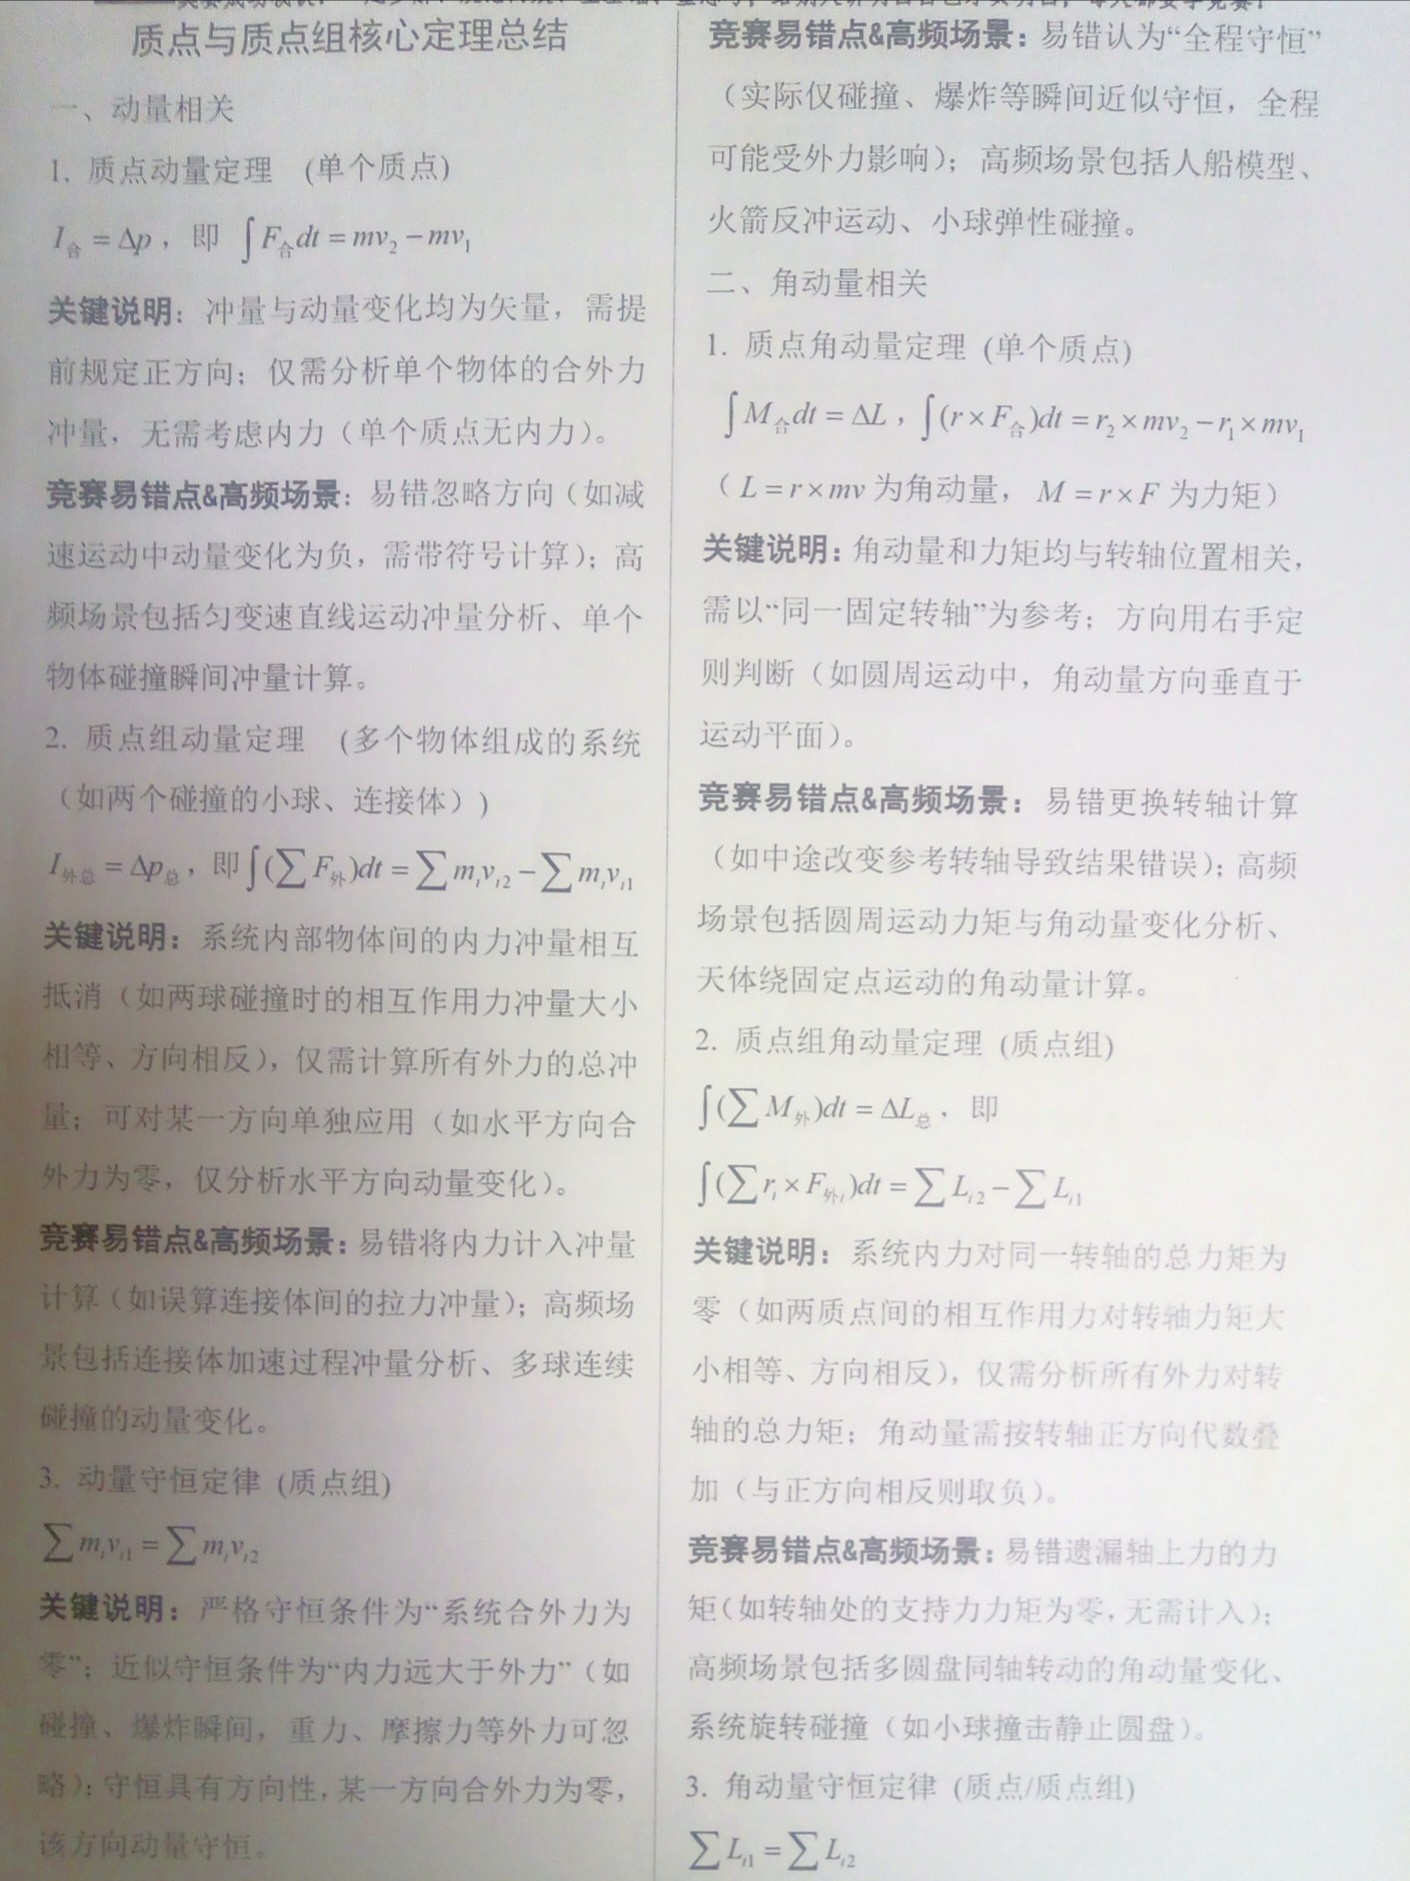 质点与质点组核心定理总结
一、动量相关
1. 质点动量定理 (单个质点)
I合 = Δp，即 ∫F合dt = mv₂ − mv₁
关键说明：冲量与动量变化均为矢量，需提
前规定正方向；仅需分析单个物体的合外力
冲量，无需考虑内力（单个质点无内力）。
竞赛易错点&高频场景：易错忽略方向（如减
速运动中动量变化为负，需带符号计算）；高
频场景包括匀变速直线运动冲量分析、单个
物体碰撞瞬间冲量计算。
2. 质点组动量定理 (多个物体组成的系统
（如两个碰撞的小球、连接体）)
I外总 = Δp总，即∫(∑F外)dt = ∑mᵢvᵢ₂ − ∑mᵢvᵢ₁
关键说明：系统内部物体间的内力冲量相互
抵消（如两球碰撞时的相互作用力冲量大小
相等、方向相反），仅需计算所有外力的总冲
量；可对某一方向单独应用（如水平方向合
外力为零，仅分析水平方向动量变化）。
竞赛易错点&高频场景：易错将内力计入冲量
计算（如误算连接体间的拉力冲量）；高频场
景包括连接体加速过程冲量分析、多球连续
碰撞的动量变化。
3. 动量守恒定律 (质点组)
∑mᵢvᵢ₁ = ∑mᵢvᵢ₂
关键说明：严格守恒条件为“系统合外力为
零”；近似守恒条件为“内力远大于外力”（如
碰撞、爆炸瞬间，重力、摩擦力等外力可忽
略）；守恒具有方向性，某一方向合外力为零，
该方向动量守恒。
竞赛易错点&高频场景：易错认为“全程守恒”
（实际仅碰撞、爆炸等瞬间近似守恒，全程
可能受外力影响）；高频场景包括人船模型、
火箭反冲运动、小球弹性碰撞。
二、角动量相关
1. 质点角动量定理 (单个质点)
∫M合dt = ΔL，∫(r×F合)dt = r₂×mv₂ − r₁×mv₁
（L = r×mv 为角动量，M = r×F 为力矩）
关键说明：角动量和力矩均与转轴位置相关，
需以“同一固定转轴”为参考；方向用右手定
则判断（如圆周运动中，角动量方向垂直于
运动平面）。
竞赛易错点&高频场景：易错更换转轴计算
（如中途改变参考转轴导致结果错误）；高频
场景包括圆周运动力矩与角动量变化分析、
天体绕固定点运动的角动量计算。
2. 质点组角动量定理 (质点组)
∫(∑M外)dt = ΔL总，即
∫(∑rᵢ×F外ᵢ)dt = ∑Lᵢ₂ − ∑Lᵢ₁
关键说明：系统内力对同一转轴的总力矩为
零（如两质点间的相互作用力对转轴力矩大
小相等、方向相反），仅需分析所有外力对转
轴的总力矩；角动量需按转轴正方向代数叠
加（与正方向相反则取负）。
竞赛易错点&高频场景：易错遗漏轴上力的力
矩（如转轴处的支持力力矩为零，无需计入）；
高频场景包括多圆盘同轴转动的角动量变化、
系统旋转碰撞（如小球撞击静止圆盘）。
3. 角动量守恒定律 (质点/质点组)
∑Lᵢ₁ = ∑Lᵢ₂